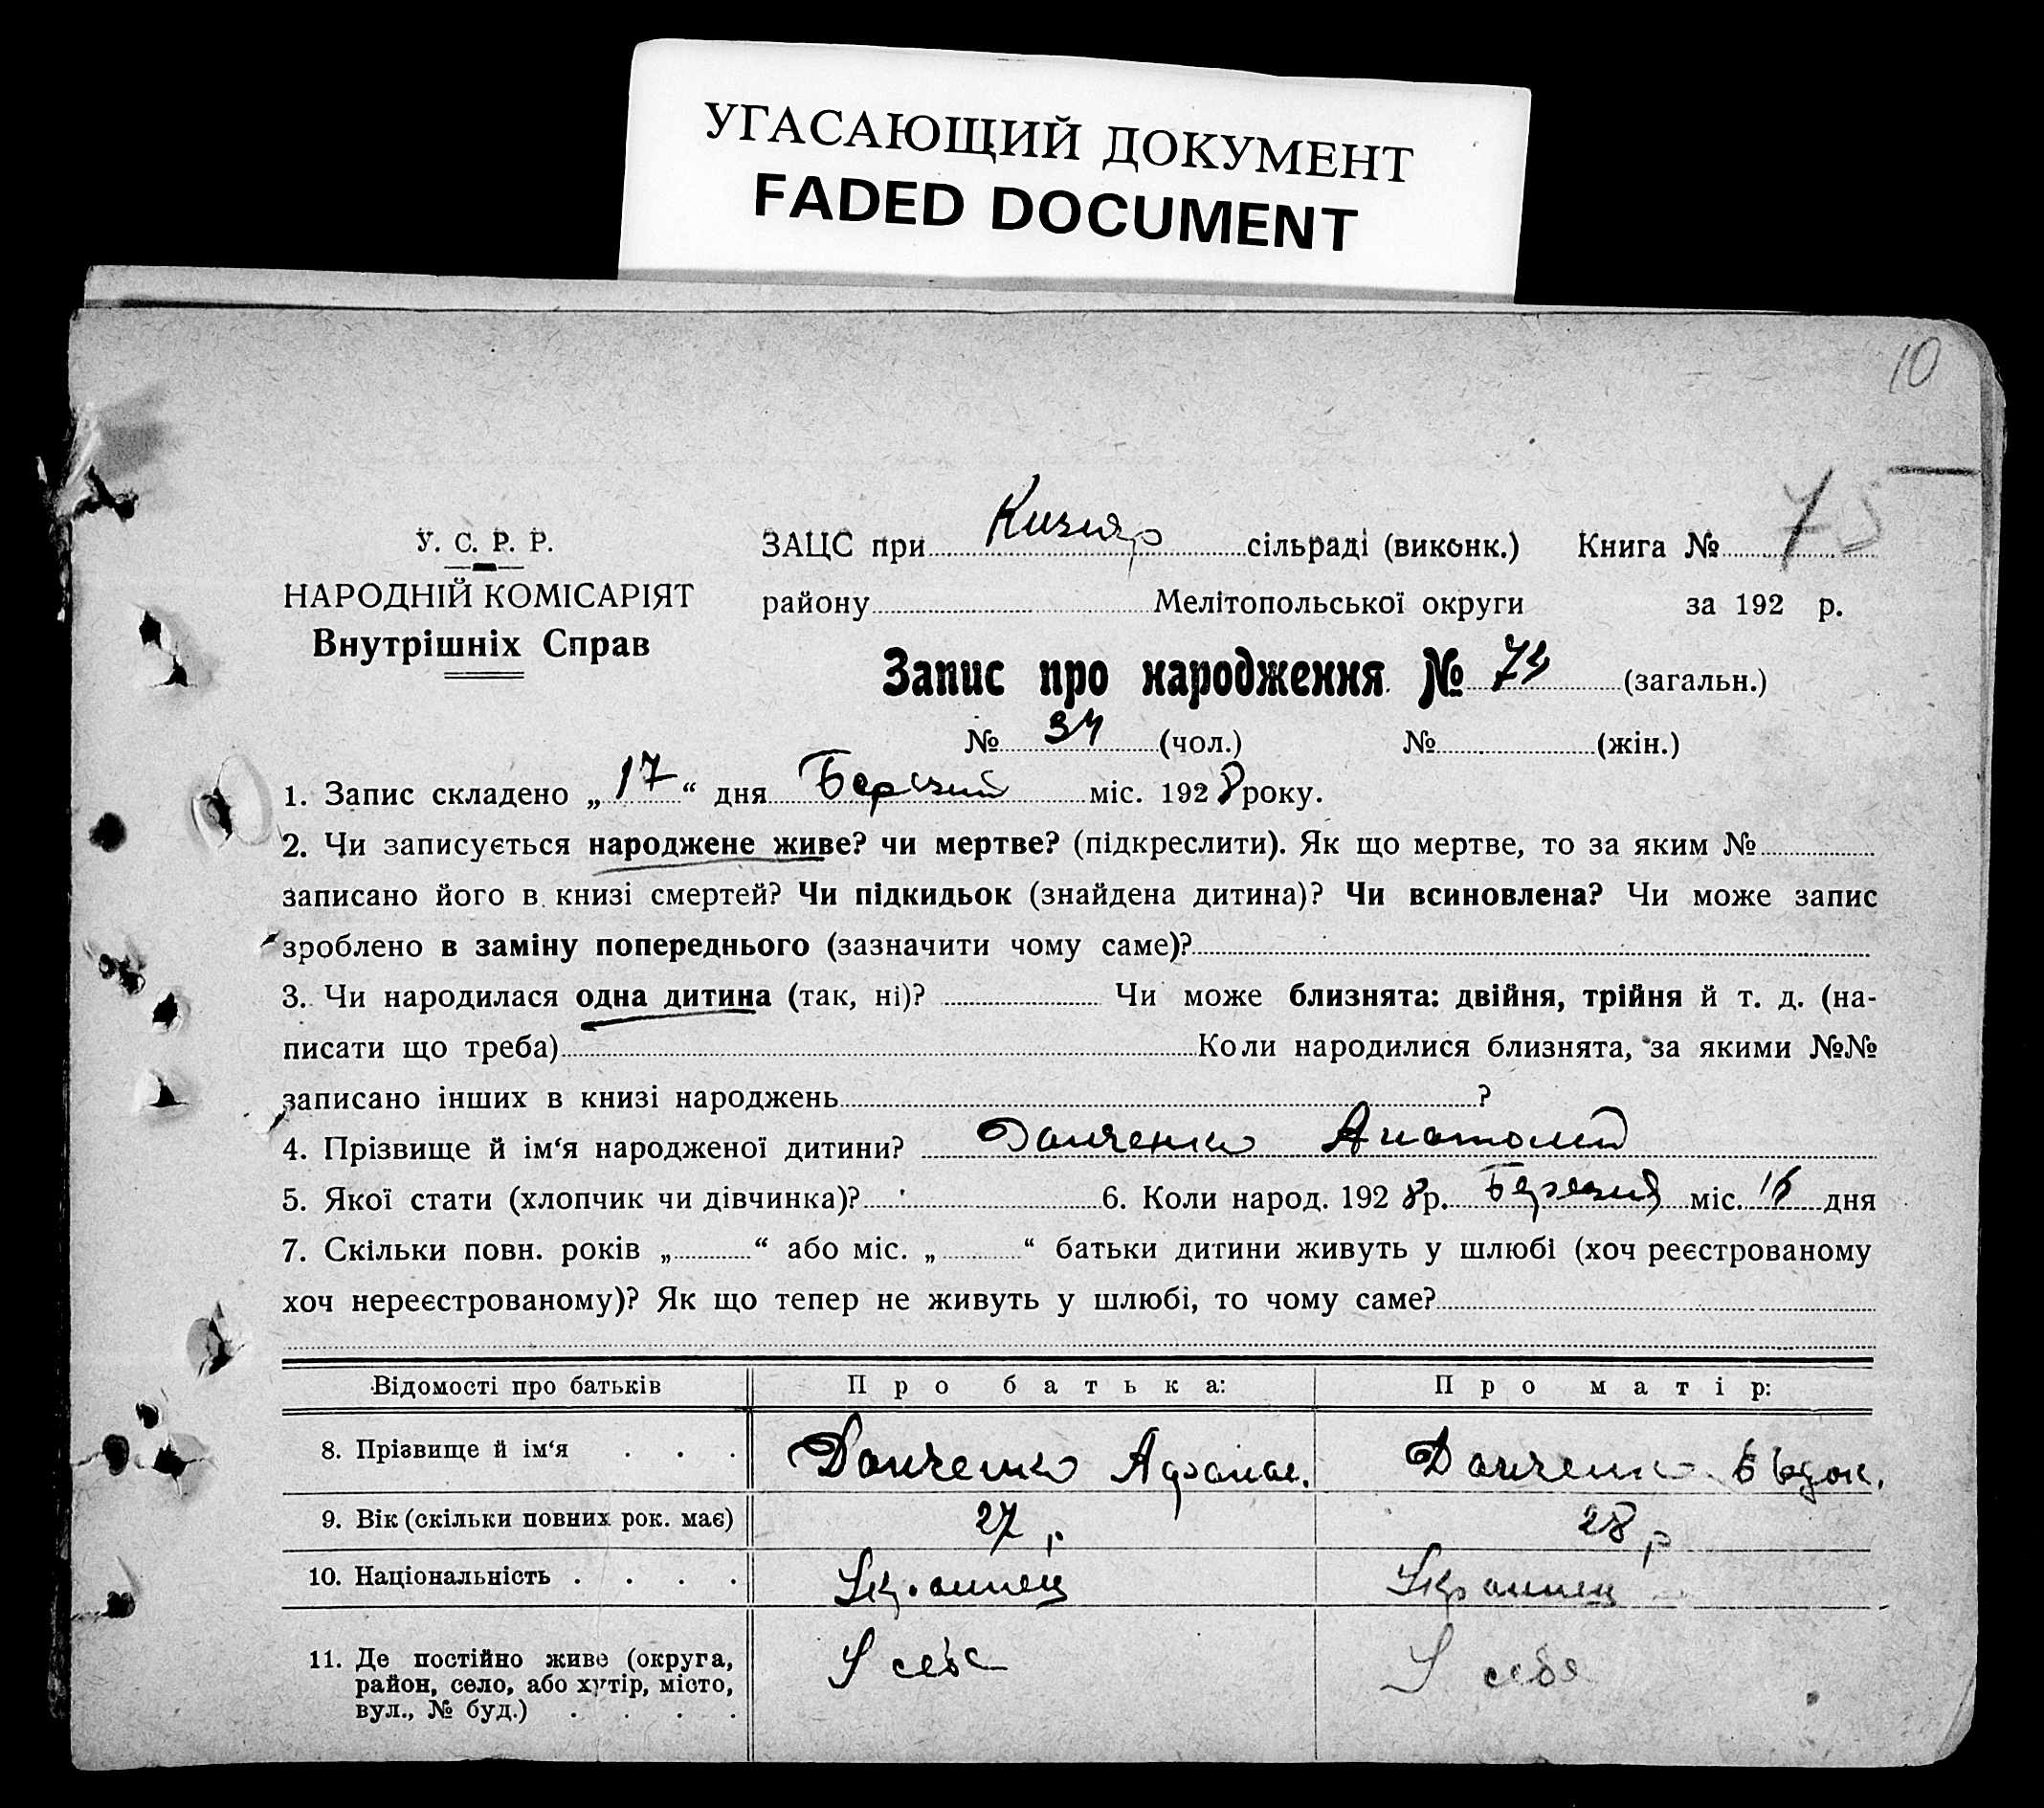 УГАСАЮЩИЙ ДОКУМЕНТ
FADED DOCUMENT
10
У. С. Р. Р.
НАРОДНІЙ КОМІСАРІЯТ
Внутрішніх Справ
ЗАЦС при Кизияр сільраді (виконк.) Книга № 75
району Мелітопольської округи за 192 р.
Запис про народження № 73 (загальн.)
№ 34 (чол.) № (жін.)
1. Запис складено „17“ дня міс. 1928 року.
2. Чи записується народжене живе? чи мертве? (підкреслити). Як що мертве, то за яким №
записано його в книзі смертей? Чи підкидьок (знайдена дитина)? Чи всиновлена? Чи може запис
зроблено в заміну попереднього (зазначити чому саме)?
3. Чи народилася одна дитина (так, ні)? Чи може близнята: двійня, трійня й т. д. (на-
писати що треба) Коли народилися близнята, за якими №№
записано інших в книзі народжень ?
4. Прізвище й ім‘я народженої дитини? Данченко Анатолий
5. Якої стати (хлопчик чи дівчинка)? 6. Коли народ. 1928 р. Березня міс. 16 дня
7. Скільки повн. років „ “ або міс. „ “ батьки дитини живуть у шлюбі (хоч реєстрованому
хоч нереєстрованому)? Як що тепер не живуть у шлюбі, то чому саме?
Відомості про батьків Про батька: Про матір:
8. Прізвище й ім‘я . . . Данченко Афанас. Данченко Евдок.
9. Вік (скільки повних рок. має) 27 р 28 р
10. Національність . . . . Украинец Украинец
11. Де постійно живе (округа,
район, село, або хутір, місто,
вул., № буд.) . . . .
У себе У себя